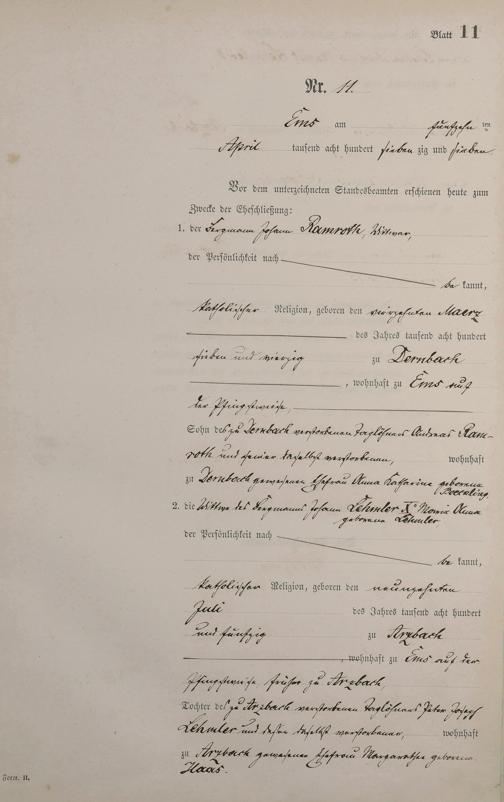 Blatt 11
Nr. 11.
Ems am fünfzehn ten
April tausend acht hundert sieben zig und sieben
Vor dem unterzeichneten Standesbeamten erschienen heute zum
Zwecke der Eheschließung:
1. der Bergmann Johann Ramroth, Wittwer,
der Persönlichkeit nach
be kannt,
katholischer Religion, geboren den vierzehnten Maerz
des Jahres tausend acht hundert
sieben und vierzig zu Dernbach
, wohnhaft zu Ems auf
der Pfingstweise,
Sohn des zu Dernbach verstorbenen Taglöhners Andreas Ram-
roth und seiner daselbst verstorbenen, wohnhaft
zu Dernbach gewesenen Ehefrau Anna Katharine geborene
2. die Wittwe des Bergmanns Johann Lehmler Maria Anna
geborene Lehmler
der Persönlichkeit nach
be kannt,
katholischer Religion, geboren den neunzehnten
Juli des Jahres tausend acht hundert
und fünfzig zu Arzbach
, wohnhaft zu Ems auf der
Pfingstweise früher zu Arzbach,
Tochter des zu Arzbach verstorbenen Taglöhners Peter Josef
Lehmler und dessen daselbst verstorbenen, wohnhaft
zu Arzbach gewesenen Ehefrau Margarethe geborene
Haas.
Form. B.